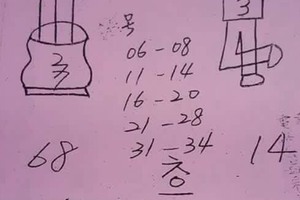 3
号
06-08
11-14
16-20
21-28
31-34
68
14